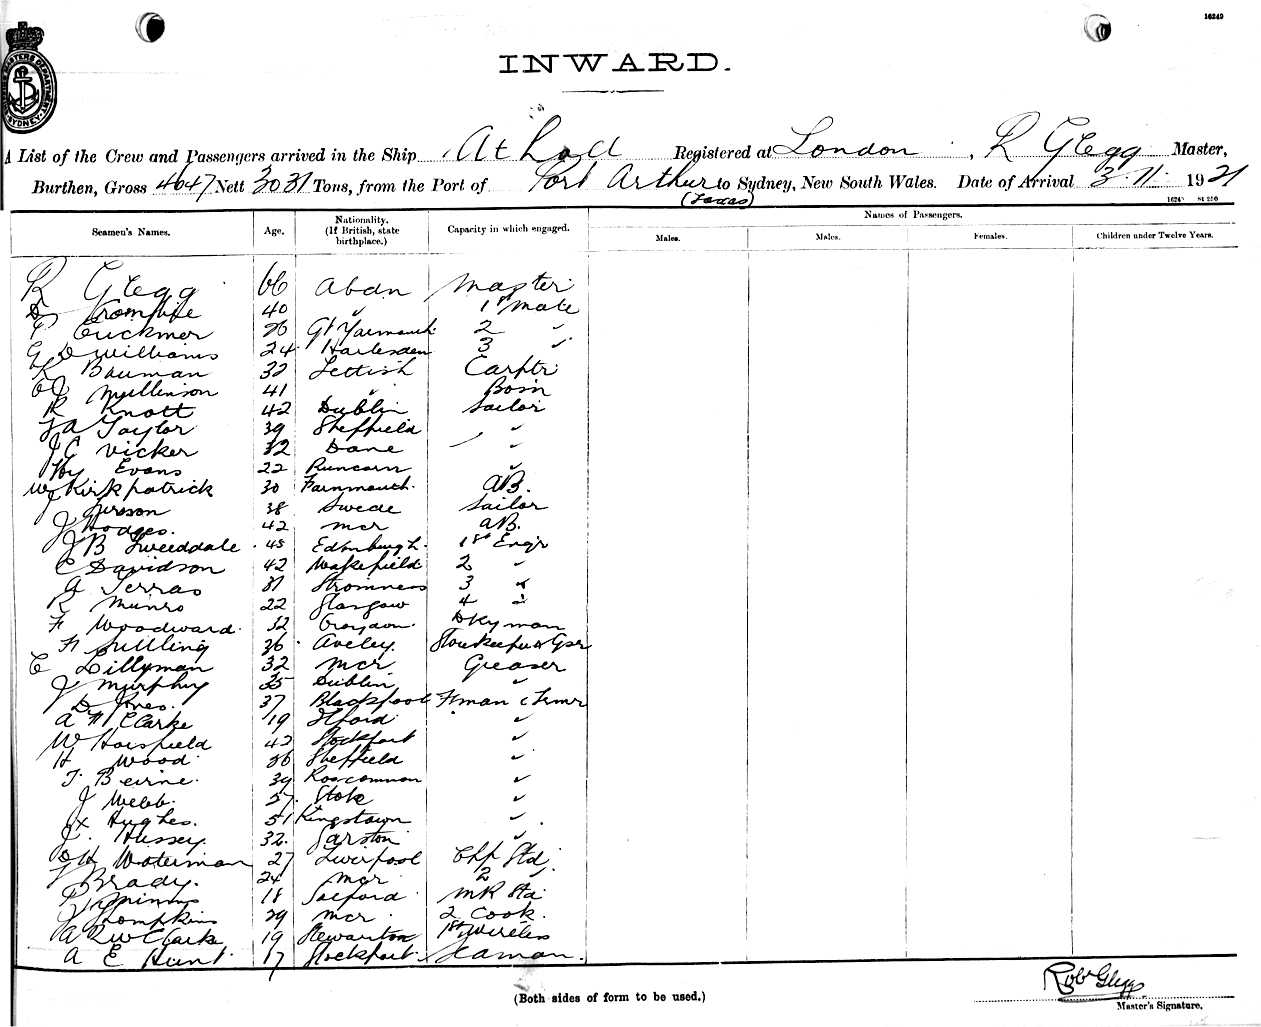 16249
INWARD.
A List of the Crew and Passengers arrived in the Ship Registered at London, R Glegg Master,
Burthen, Gross 4647 Nett 3031 Tons, from the Port of Port Arthur to Sydney, New South Wales. Date of Arrival 3.11. 1921
(Texas)
Seamen's Names. Age. Nationality. (If British, state birthplace.) Capacity in which engaged. Names of Passengers.
Males. Males. Females. Children under Twelve Years.
R Glegg 66 Master
40 " 1st Mate
Cuckmer 26 Gt Yarmouth 2 "
G D Williams 24 Harlesden 3 "
R Bauman 32 Lettish Carptr
Mullinson 41 " Bosn
R Knott 42 Dublin Sailor
Taylor 39 Sheffield "
J C Vicker 32 Dane "
Hy Evans 22 Runcorn "
Wm Kirkpatrick 30 AB.
38 Swede Sailor
J Hodges. 42 mcr AB.
J B Tweeddale 45 Edinburgh. 1st Engr
C Davidson 42 Wakefield 2 "
A Terras 31 Stromness 3 "
R Munro 22 Glasgow 4 "
F Woodward. 32 Croydon. Dkyman
36 Aveley. Storekeeper Gsr
C Lillyman 32 mcr Greaser
J Murphy 35 Dublin "
D Jones. 37 Blackpool Fireman & Trmr
A H Clarke 19 Ilford "
W Horsfield 42 Stockport "
H Wood 36 Sheffield "
T. Beirne. 39 Roscommon "
J Webb. 57. Stoke "
Hughes. 51 Kingstown "
J. Hussey. 32. Garston "
D H Waterman 27 Liverpool Chf Std
J Brady. 24 mcr 2 "
18 Salford MR Std
J Tompkins 29 mcr 2 Cook.
A R W Clarke 19 Stewarton 1st Wireless
A E Hunt 17 Stockport. Seaman.
(Both sides of form to be used.)
Robt Glegg
Master's Signature.